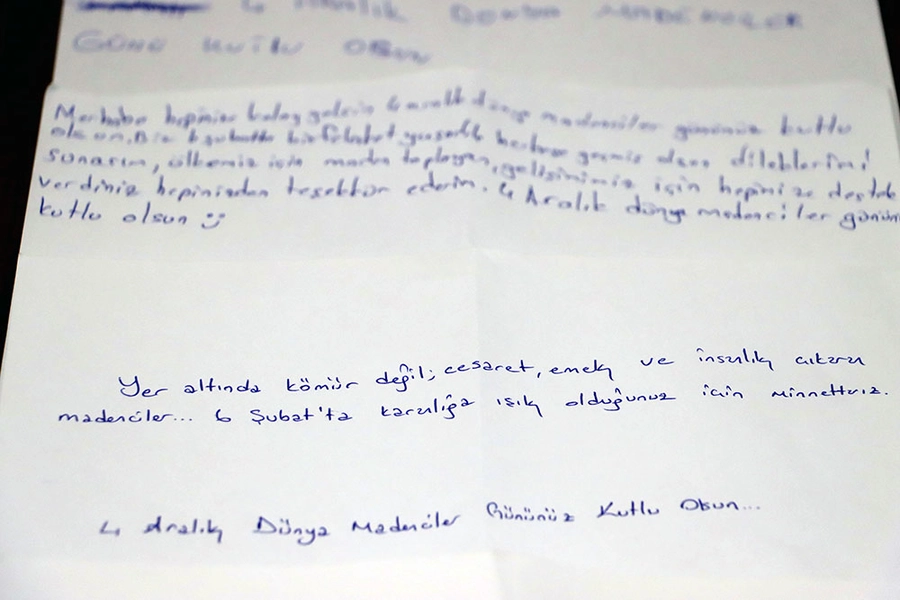 4 Aralık Dünya Madenciler
Günü Kutlu Olsun
Merhaba hepinize kolay gelsin 4 aralık dünya madenciler gününüz kutlu
olsun. Biz 6 şubatta bir felaket yaşadık herkese geçmiş olsun dileklerimi
sunarım, ülkemiz için maden toplayan, gelişimimiz için hepinize destek
verdiniz hepinizden teşekkür ederim. 4 Aralık dünya madenciler günün
kutlu olsun
Yer altında kömür değil; cesaret, emek ve insanlık çıkaran
madenciler... 6 Şubat'ta karanlığa ışık olduğunuz için minnettarız.
4 Aralık Dünya Madenciler Gününüz Kutlu Olsun...